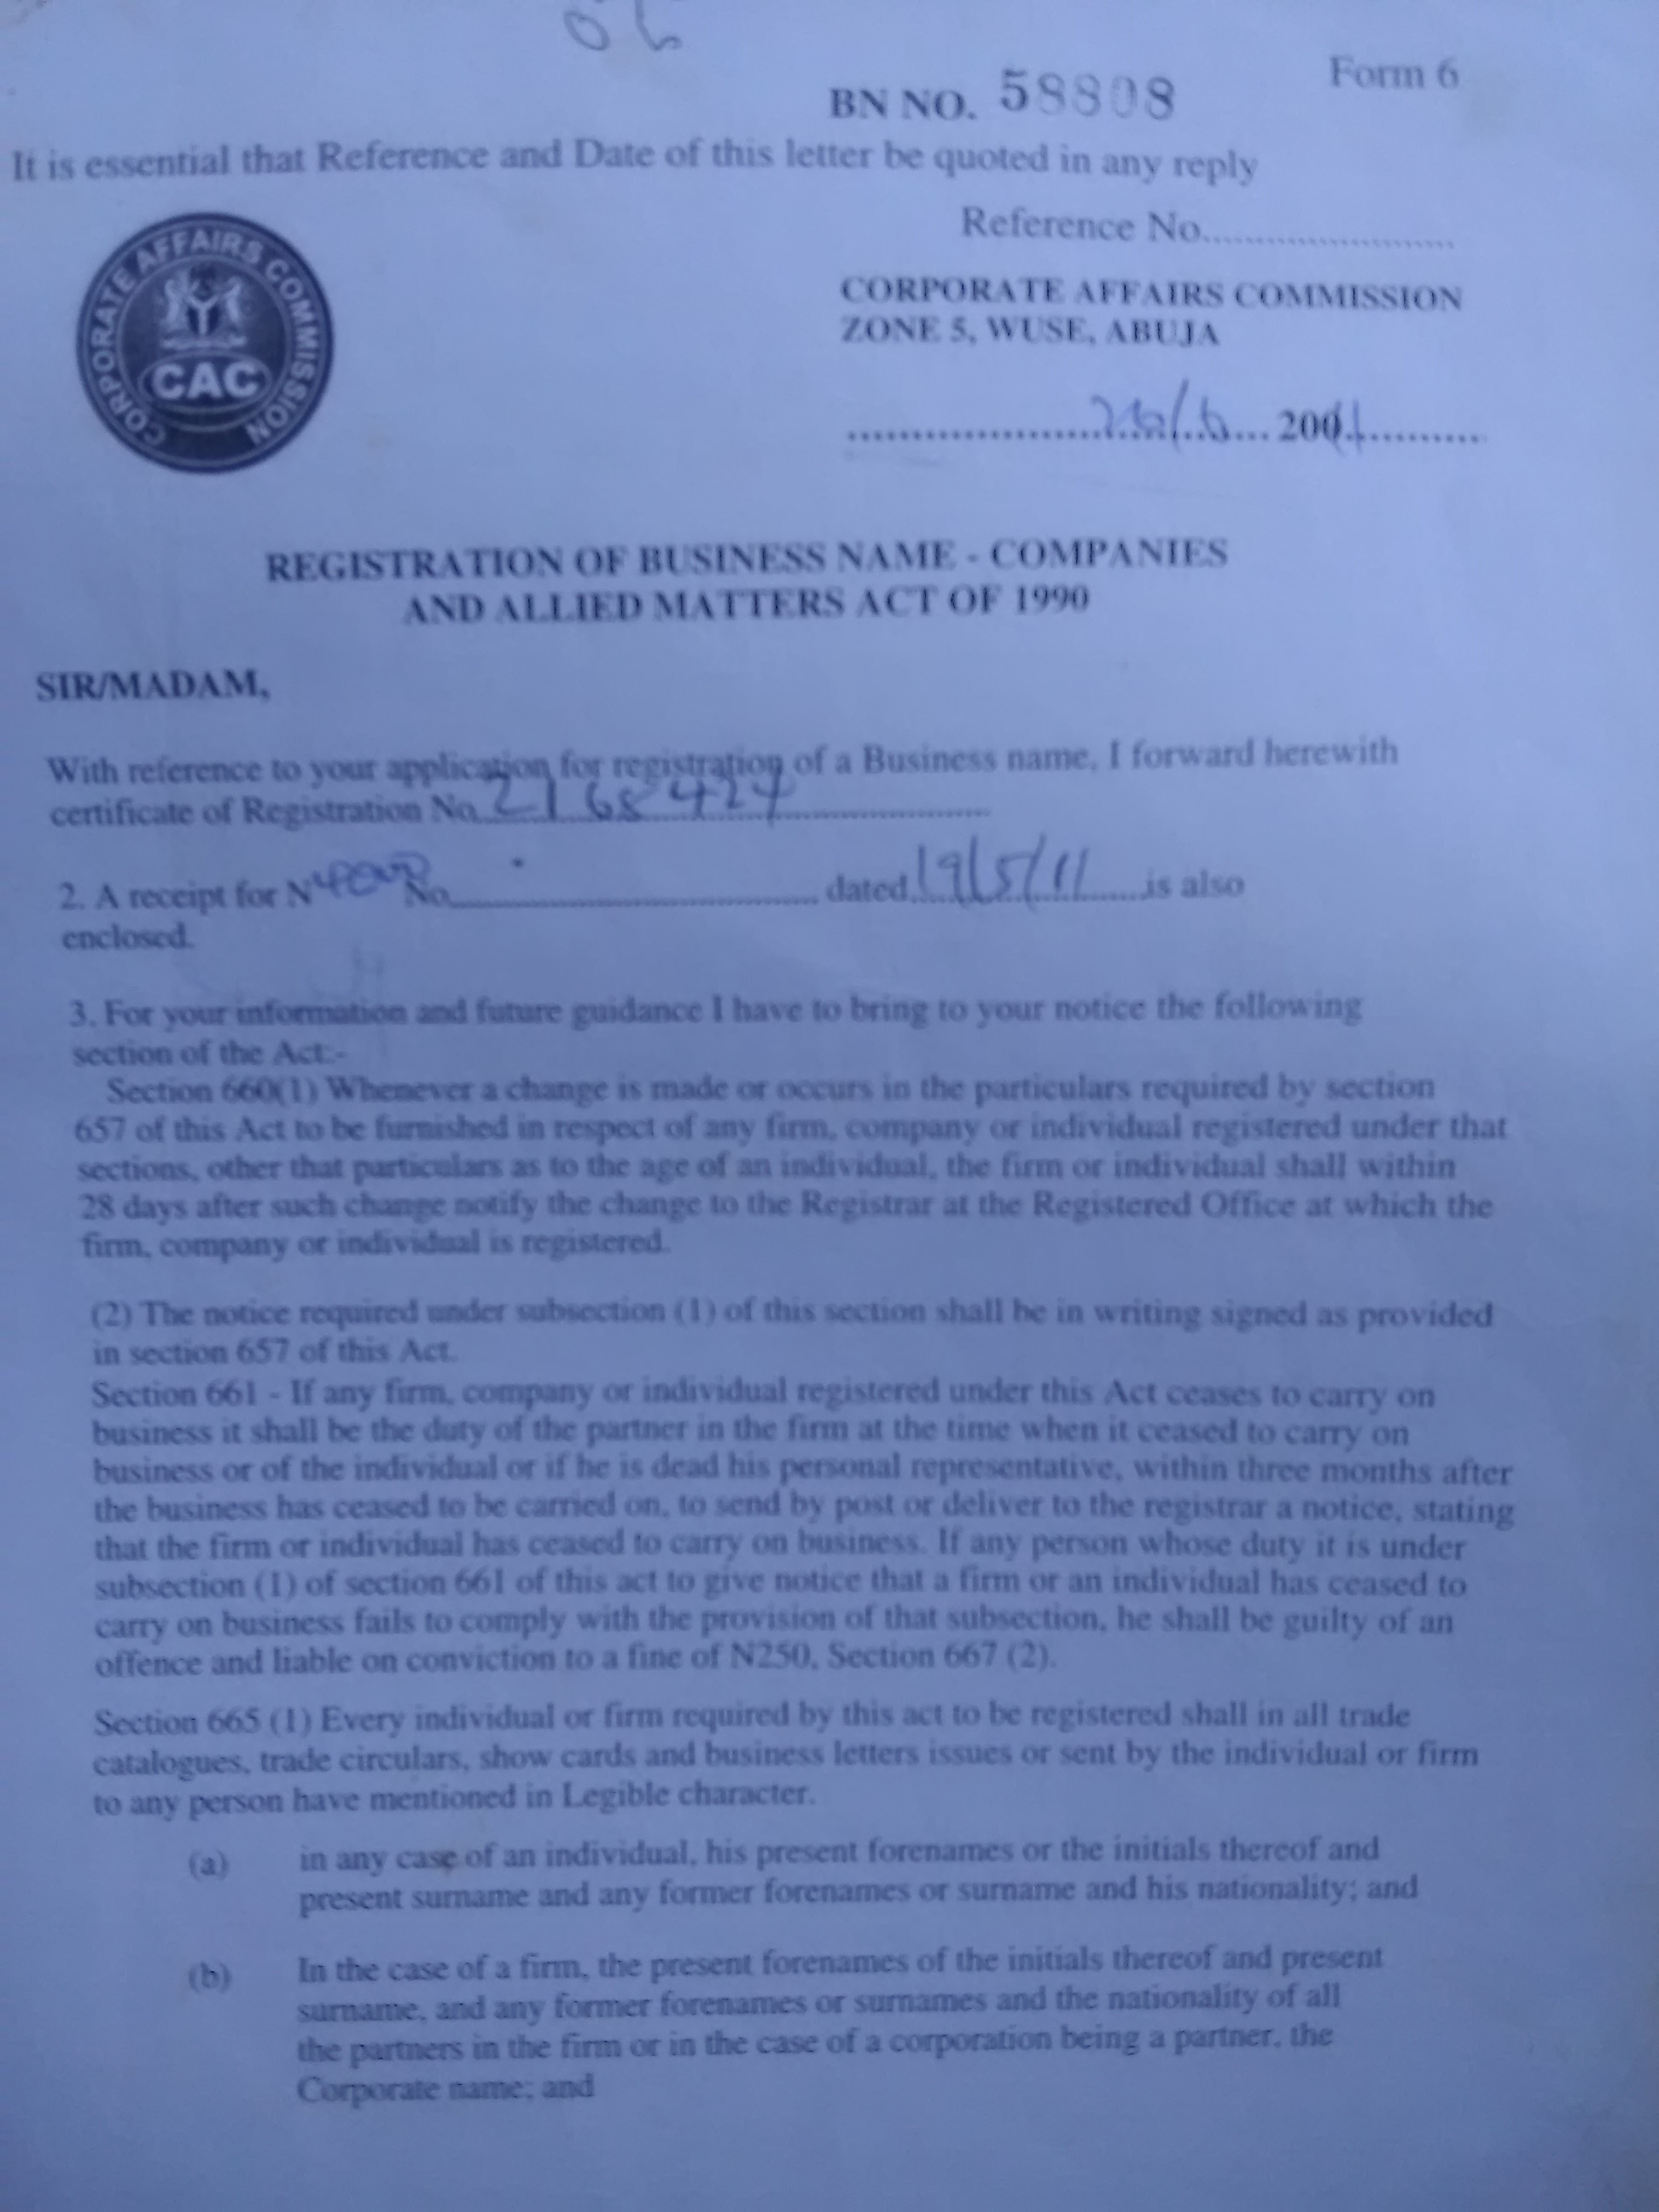 BN NO. 58808
Form 6
It is essential that Reference and Date of this letter be quoted in any reply
Reference No..........................
CORPORATE AFFAIRS COMMISSION
CAC
CORPORATE AFFAIRS COMMISSION
ZONE 5, WUSE, ABUJA
REGISTRATION OF BUSINESS NAME - COMPANIES
AND ALLIED MATTERS ACT OF 1990
SIR/MADAM,
With reference to your application for registration of a Business name, I forward herewith
certificate of Registration No. 2168424
2. A receipt for N No. dated 19/5/11 is also
enclosed.
3. For your information and future guidance I have to bring to your notice the following
section of the Act:-
Section 660(1) Whenever a change is made or occurs in the particulars required by section
657 of this Act to be furnished in respect of any firm, company or individual registered under that
sections, other that particulars as to the age of an individual, the firm or individual shall within
28 days after such change notify the change to the Registrar at the Registered Office at which the
firm, company or individual is registered.
(2) The notice required under subsection (1) of this section shall be in writing signed as provided
in section 657 of this Act.
Section 661 - If any firm, company or individual registered under this Act ceases to carry on
business it shall be the duty of the partner in the firm at the time when it ceased to carry on
business or of the individual or if he is dead his personal representative, within three months after
the business has ceased to be carried on, to send by post or deliver to the registrar a notice, stating
that the firm or individual has ceased to carry on business. If any person whose duty it is under
subsection (1) of section 661 of this act to give notice that a firm or an individual has ceased to
carry on business fails to comply with the provision of that subsection, he shall be guilty of an
offence and liable on conviction to a fine of N250, Section 667 (2).
Section 665 (1) Every individual or firm required by this act to be registered shall in all trade
catalogues, trade circulars, show cards and business letters issues or sent by the individual or firm
to any person have mentioned in Legible character.
(a) in any case of an individual, his present forenames or the initials thereof and
present surname and any former forenames or surname and his nationality; and
(b) In the case of a firm, the present forenames of the initials thereof and present
surname, and any former forenames or surnames and the nationality of all
the partners in the firm or in the case of a corporation being a partner, the
Corporate name; and